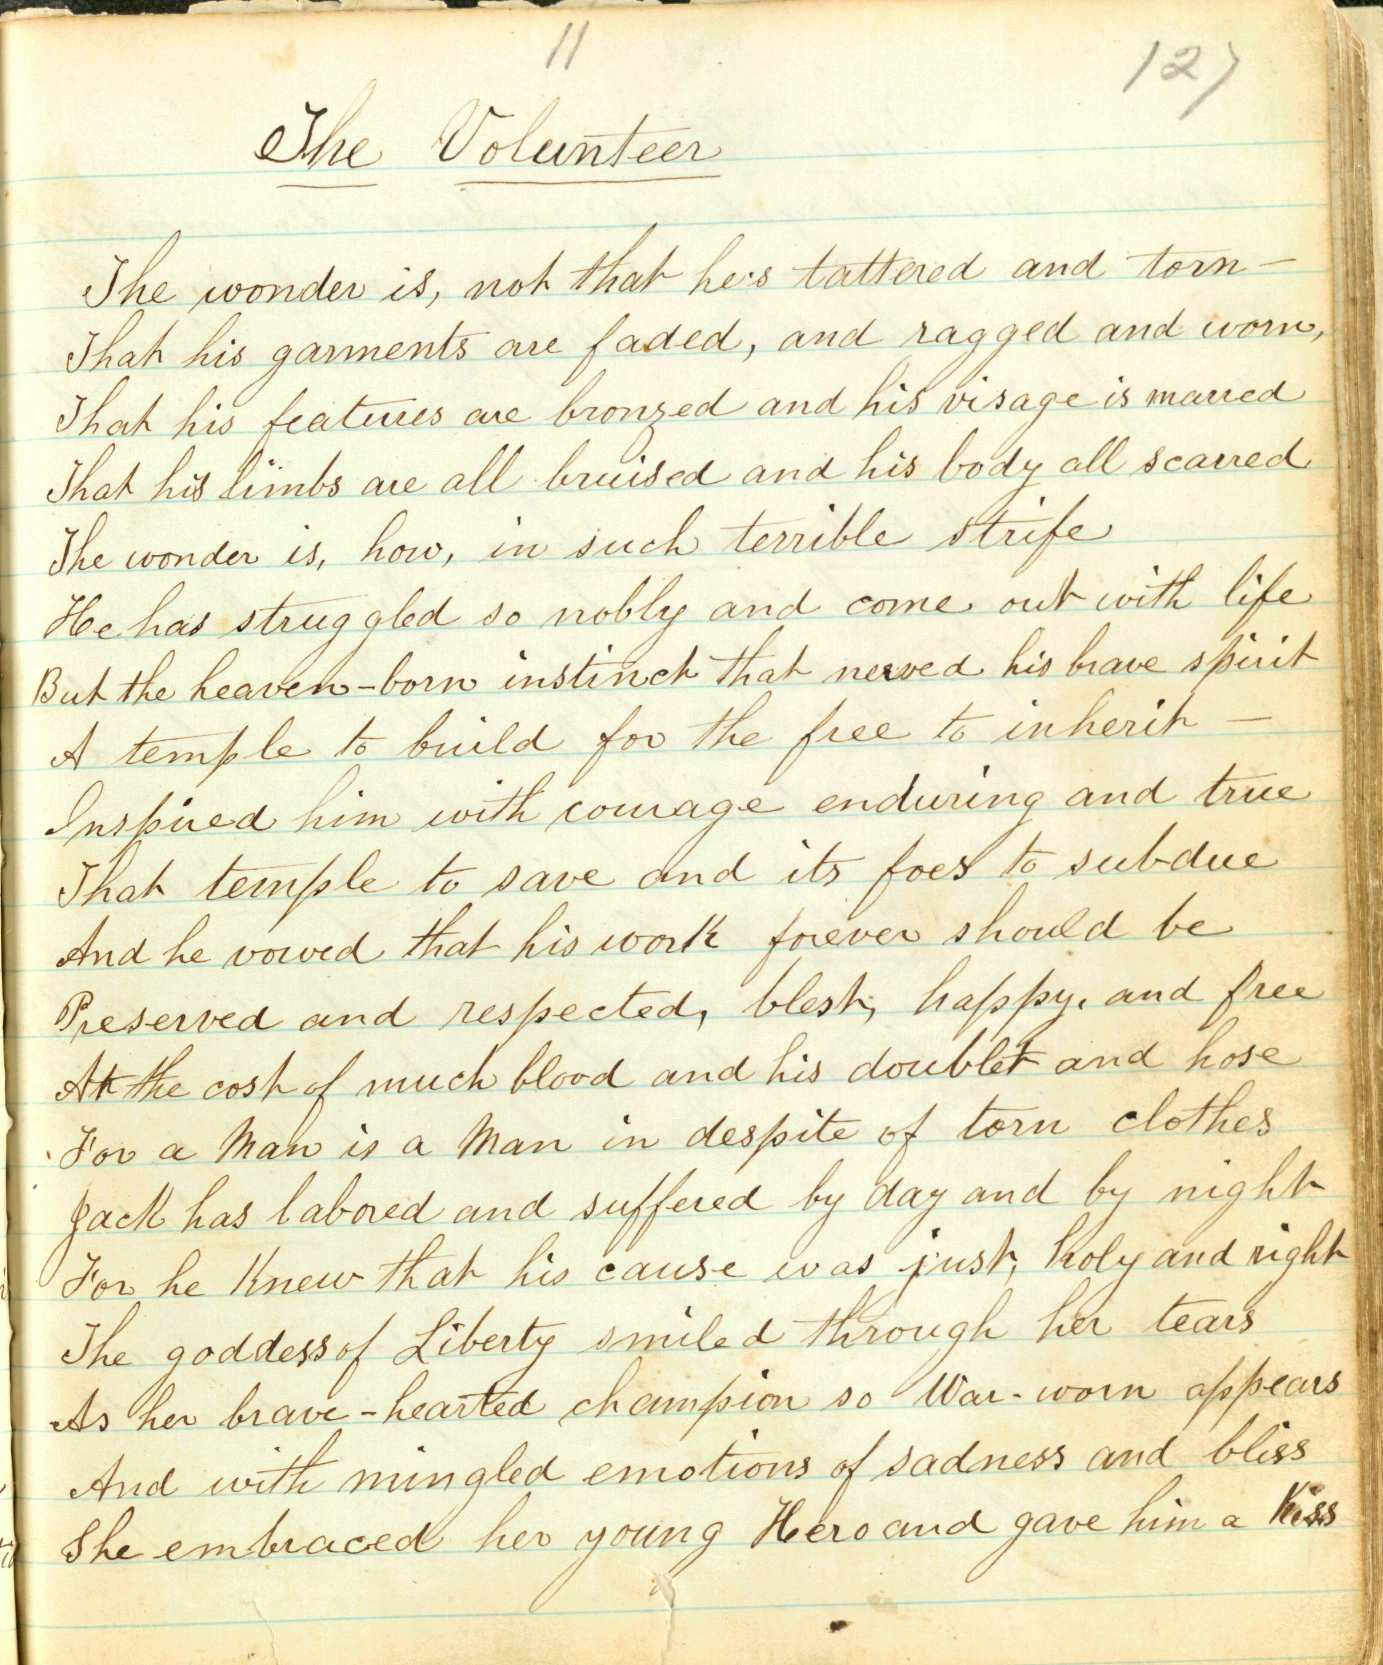 11
127
The Volunteer
The wonder is, not that he's tattered and torn —
That his garments are faded, and ragged and worn,
That his features are bronzed and his visage is marred
That his limbs are all bruised and his body all scarred
The wonder is, how, in such terrible strife
He has struggled so nobly and come out with life
But the heaven-born instinct that nerved his brave spirit
A temple to build for the free to inherit —
Inspired him with courage enduring and true
That temple to save and its foes to subdue
And he vowed that his work forever should be
Preserved and respected, blest, happy, and free
At the cost of much blood and his doublet and hose
For a Man is a Man in despite of torn clothes
Jack has labored and suffered by day and by night
For he Knew that his cause was just, holy and right
The goddess of Liberty smiled through her tears
As her brave-hearted champion so War-worn appears
And with mingled emotions of sadness and bliss
She embraced her young Hero and gave him a Kiss